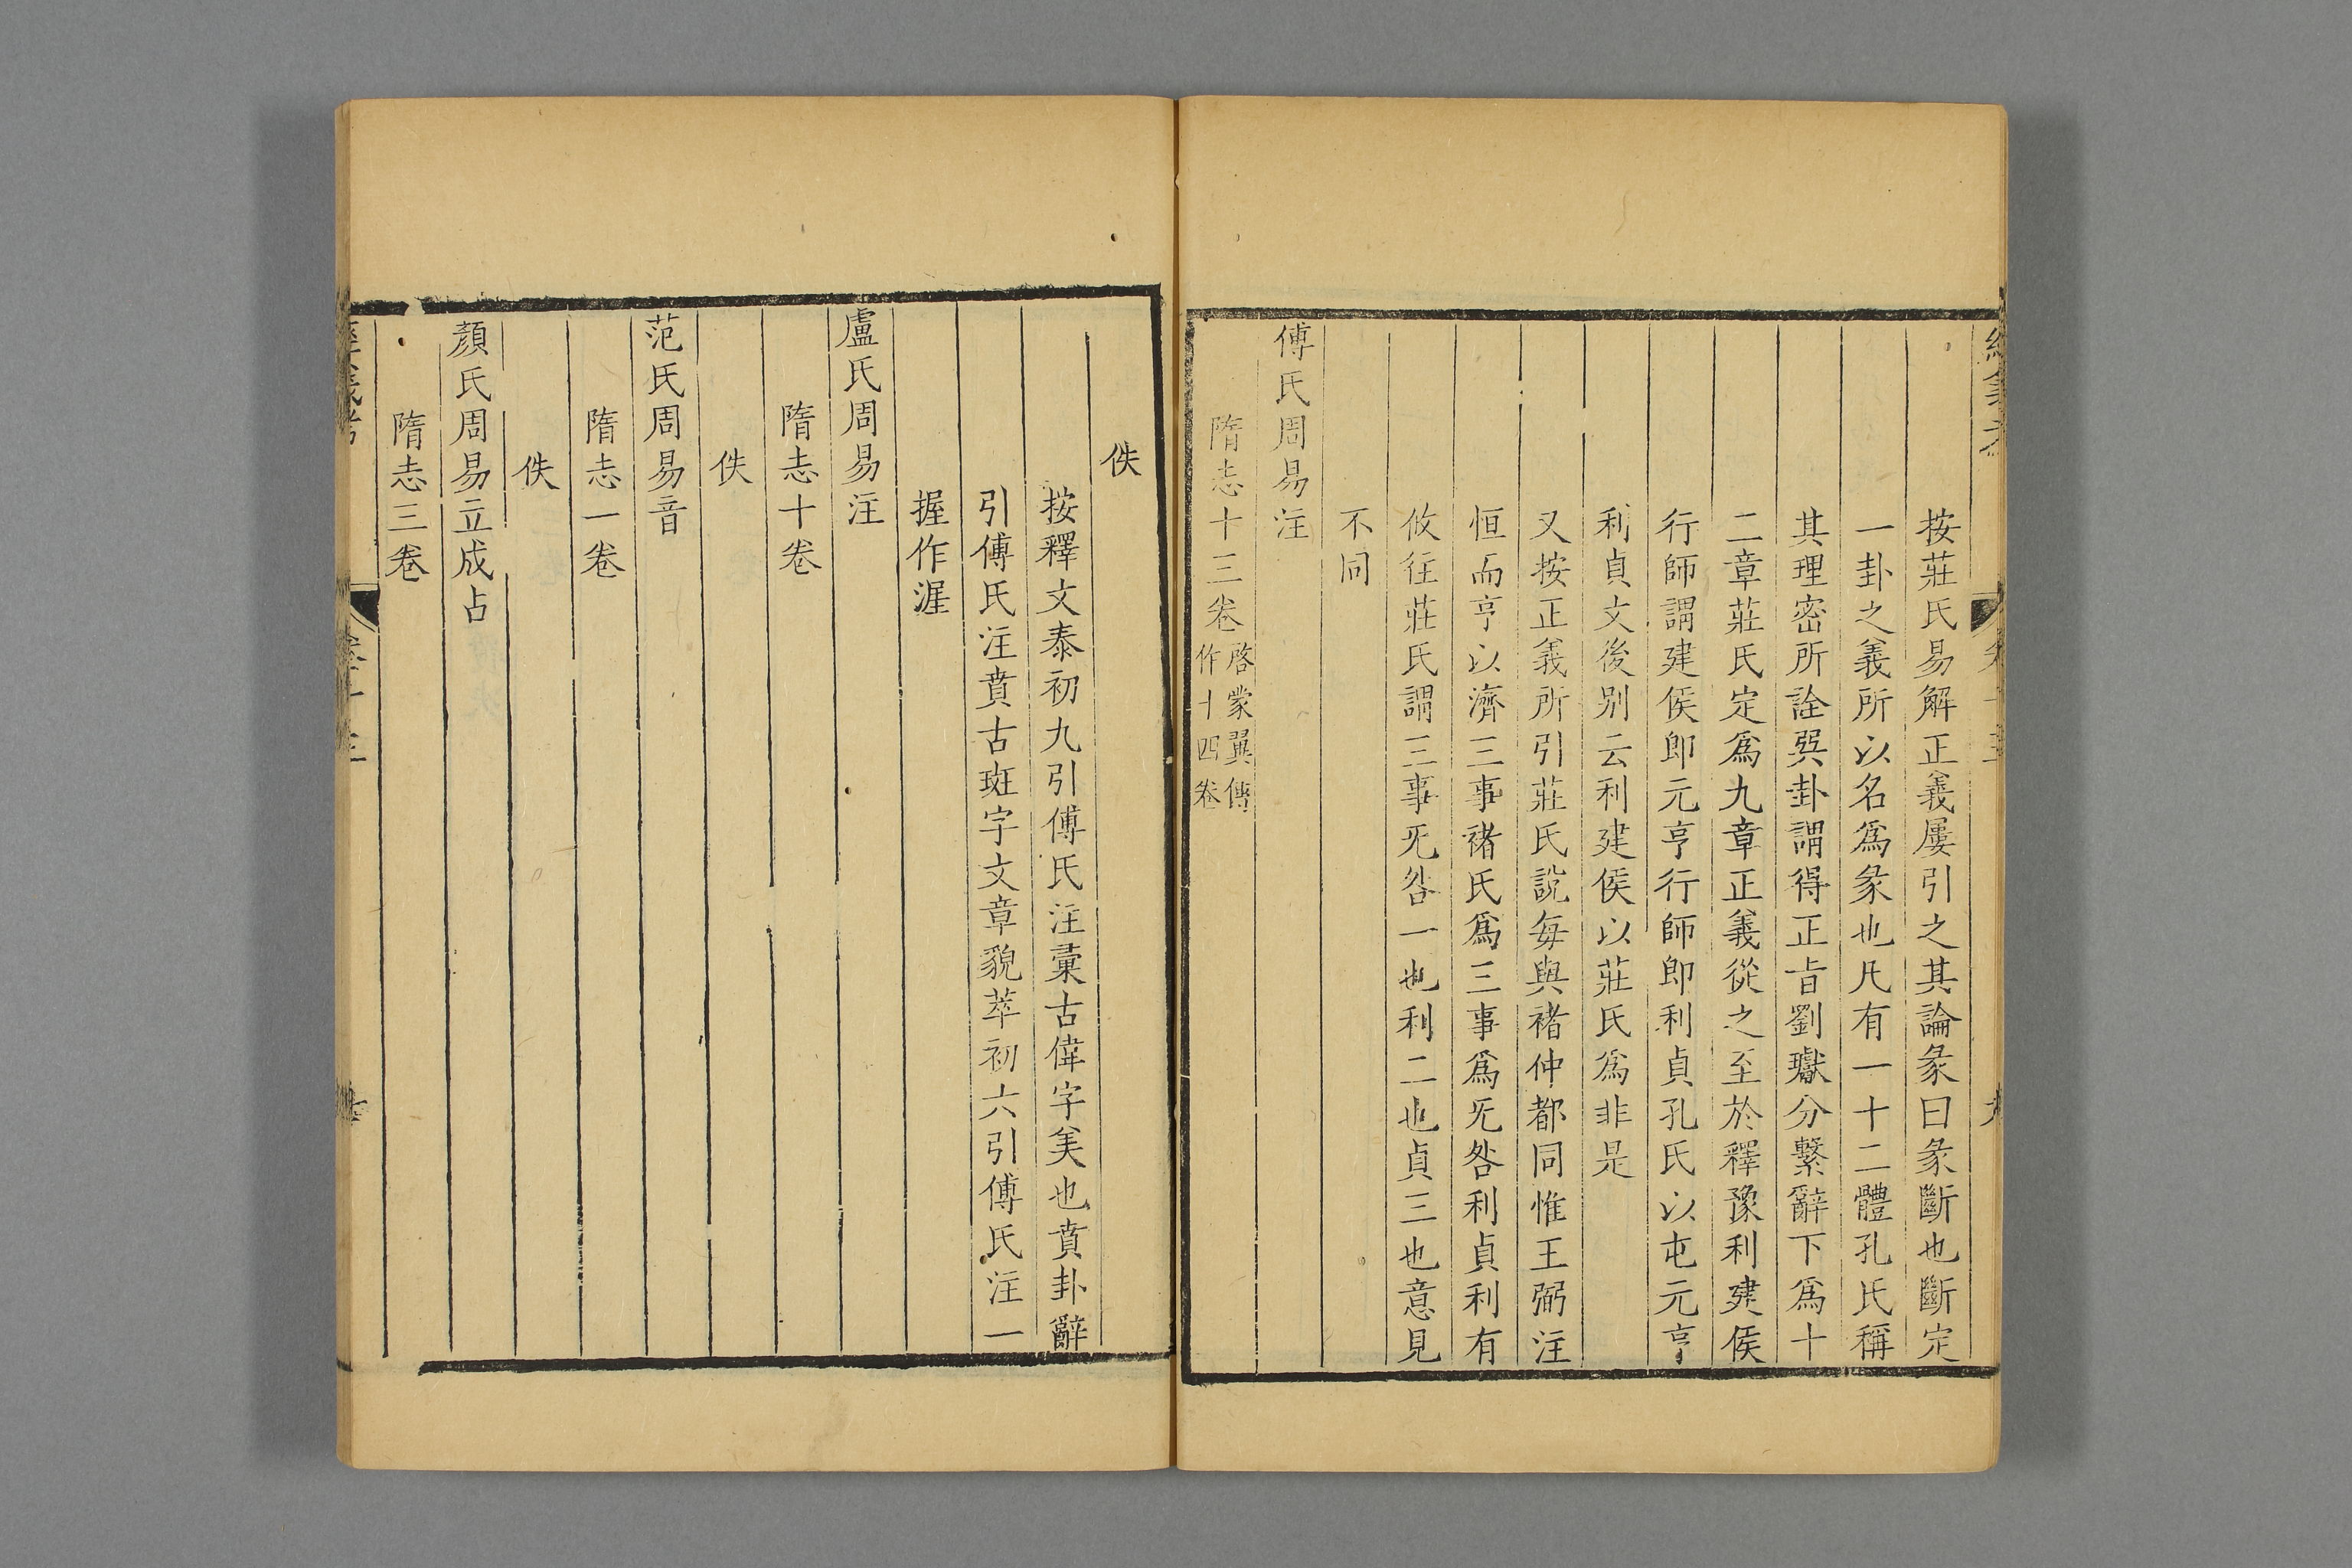 按莊氏易解正義屢引之其論彖曰彖斷也斷定
一卦之義所以名為彖也凡有一十二體孔氏稱
其理密所詮巽卦謂得正旨劉瓛分繫辭下為十
二章莊氏定為九章正義從之至於釋豫利建侯
行師謂建侯即元亨行師即利貞孔氏以屯元亨
利貞文後別云利建侯以莊氏為非是
又按正義所引莊氏說每與褚仲都同惟王弼注
恒而亨以濟三事褚氏為三事為旡咎利貞利有
攸往莊氏謂三事旡咎一也利二也貞三也意見
不同
傅氏周易注
隋志十三卷啓蒙翼傳作十四卷
佚
按釋文泰初九引傅氏注彚古偉字美也賁卦辭
引傅氏注賁古斑字文章貌萃初六引傅氏注一
握作渥
盧氏周易注
隋志十卷
佚
范氏周易音
隋志一卷
佚
顏氏周易立成占
隋志三卷